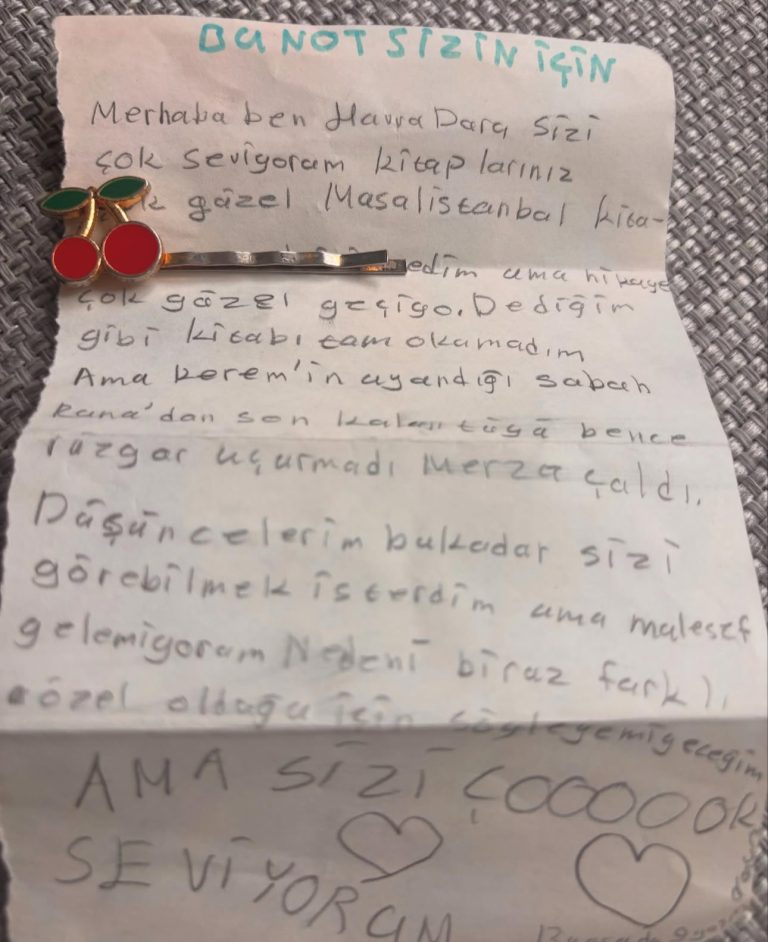 BU NOT SİZİN İÇİN
Merhaba ben Havva Dara sizi
çok seviyoram kitaplarınız
güzel Masalistanbal kita-
edim ama hikaye
çok güzel geçiyo. Dediğim
gibi kitabı tam okumadım
Ama Kerem'in uyandığı sabah
Rana'dan son kalan tüyü bence
rüzgar uçurmadı Merza çaldı.
Düşüncelerim bukadar sizi
görebilmek isterdim ama malesef
gelemiyoram Nedeni biraz farklı
özel olduğu için söyleyemiyeceğim
AMA SİZİ ÇOOOOOOK
SEVİYORUM